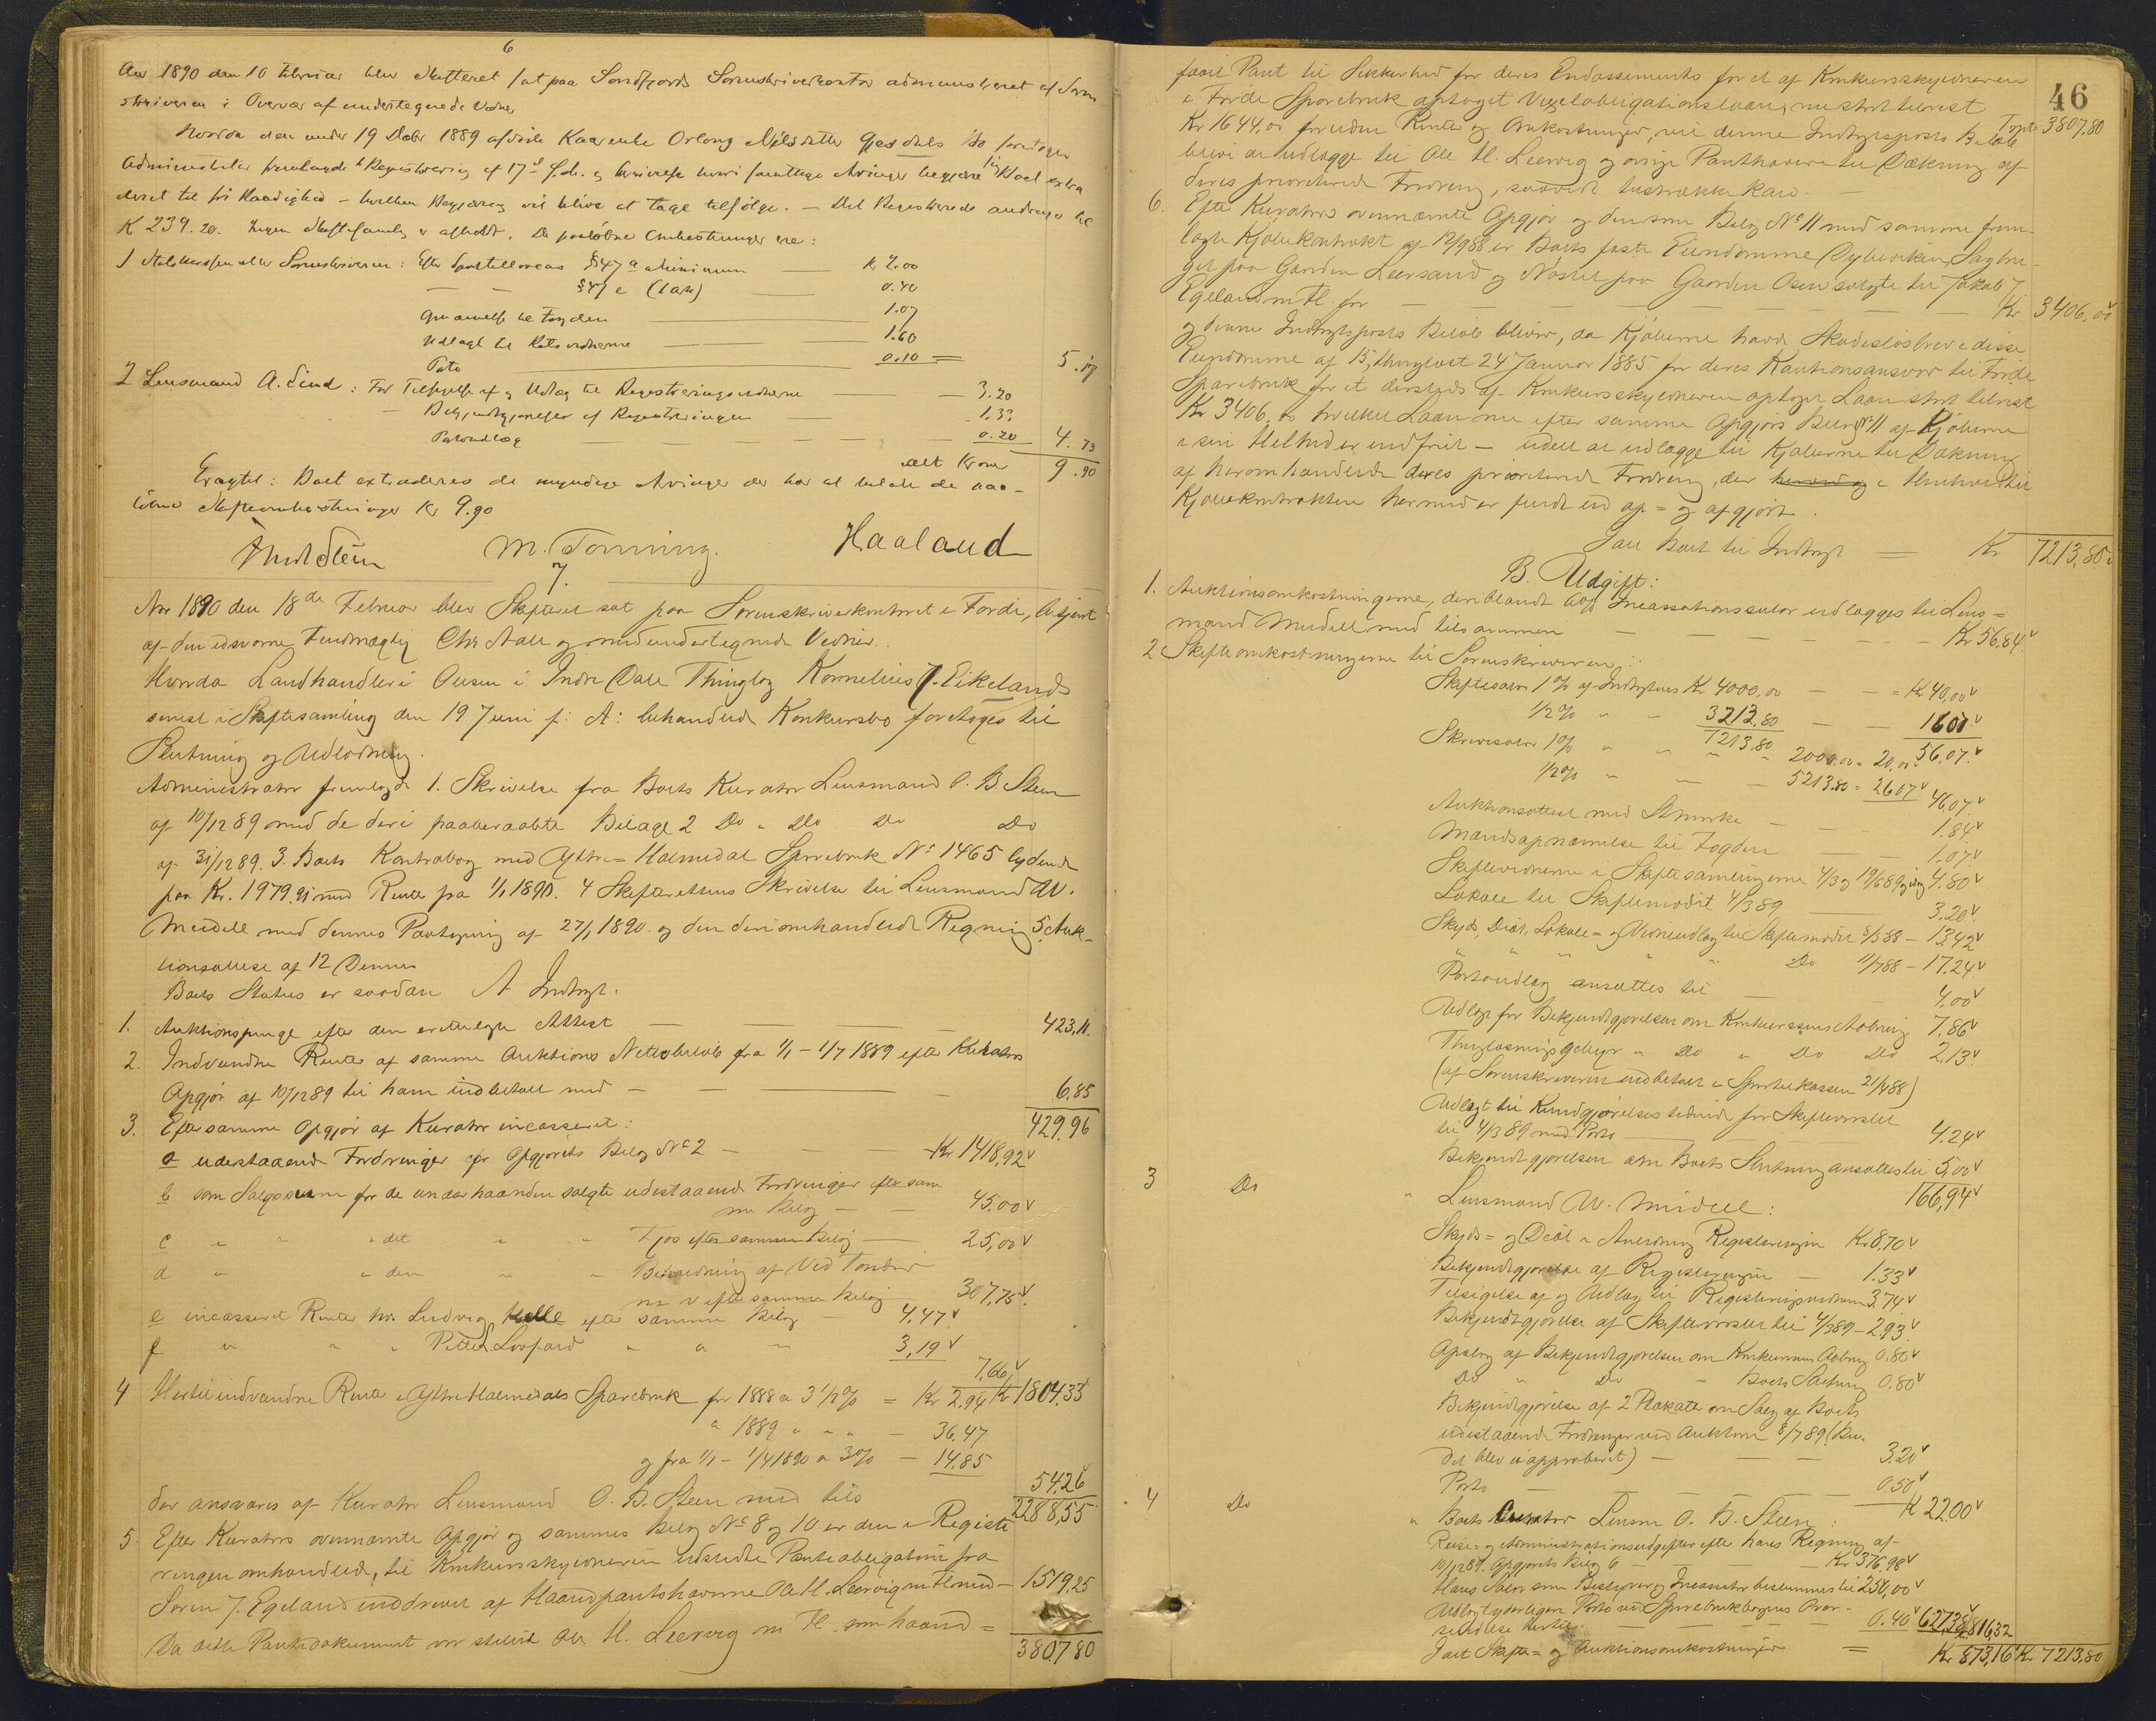 6
Aar 1890 den 10 Februar blev Skifteret sat paa Søndfjords Sorenskriverkontor administreret af Soren
skriveren i Overvær af undertegnede Vidner
Hvorda den under 19 Decbr 1889 afdøde Kaarenbe Orlong Nilsdatter Gjesdals Bo foretoges
Administrator fremlagde Registrering af 17de f. M. og Skrivelse hvori samtlige Arvinger begjære Boet extra
deret til fri Raadighed – hvilken Begjæring vil blive at tage tilfølge. – Det Registrerede andrager til
K 239.20. Ingen Skiftesamling er afholdt. De paaløbne Omkostninger ere:
1 Sorenskriveren: Efter Sportellovens §47 a Minimum — K 2.00
— — §47 e (Laas) — 0.40
Opnævnelse til Fogden — 1.07
Udlagt til Retsvidnerne — 1.60
Porto — 0.10 = 5.17
2 Lensmand A. Sind: For Tilsigelse af og Udlæg til Registreringsvidnerne — 3.20
— Bekjendtgjørelsen af Registreringen — 1.33
Portoudlæg — 0.20 4.73
alt Kroner 9.90
Eragtet: Boet extraderes de myndige Arvinger der har at betale de paa-
løbne Skifteomkostninger Kr 9.90
M. Tonning. Haaland
7.
Aar 1890 den 18de Februar blev Skifteret sat paa Sorenskriverkontoret i Førde, betjent
af den edsvorne Fuldmægtig Chr Aall og medundertegnede Vidner.
Hvorda Landhandler i Ousen i Indre Dale Thinglag Kornelius J. Eikelands
senest i Skiftesamling den 19 Juni f: A: behandlede Konkursbo foretoges til
Slutning og Udlodning.
Administrator fremlagde 1. Skrivelse fra Boets Kurator Lensmand O. B. Steen
af 10/12 89 med de deri paaberaabte Bilage 2 Do " Do Do Do
af 31/12 89. 3. Boets Kontrabog med Ytre-Holmedal Sparebank No 1465 lydende
paa Kr. 1979.91 med Rente fra 1/1 1890. 4 Skifterettens Skrivelse til Lensmand W.
Meidell med dennes Paategning af 27/1 1890. og den deri omhandlede Regning 5. Auk-
tionsattest af 12 Dennes
Boets Status er saadan A Indtægt.
1. Auktionspenge efter den fremlagte Attest — 423,11.
2. Indvundne Renter af samme Auktions Nettobeløb fra 1/1 – 1/7 1889 efter Kurators
Opgjør af 10/12 89 til ham indbetalt med — 6,85
429,96
3. Efter samme Opgjør af Kurator incasseret:
a udestaaende Fordringer efter Opgjørets Bilag No 2 — Kr 1418,92
b som Salgssum for de under haanden solgte udestaaende Fordringer efter sam
me Bilag — 45.00
c " " " det " " Fjos efter samme Bilag — 25,00
d " " " den " " Beholdning af Ved
efter samme Bilag 307,75
e incasseret Renter hos Ludvig Helle efter samme Bilag — 4,47
f " " " Peter Lofald " " " 3,19
7,66 Kr 1804.33
4 Hertil indvundne Renter i Ytre Holmedals Sparebank for 1888 a 3 1/2 % = Kr 2.94
" 1889 " " " – 36,47
og fra 1/1 – 1/4 1890 a 3% – 14,85
54,26
der ansvares af Kurator Lensmand O. B. Steen med tils 2288,55
5 Efter Kurators ovennævnte Opgjør og sammes Bilag No 8 og 10 er den i Registe
ringen omhandlede, til Konkursskyldneren udstedte Panteobligation fra
Søren J. Egeland inddrevet af Haandpantshaverne Ole H. Leervig m Fl med – 1519,25
Da dette Pantedokument var stillet Ole H. Leervig m Fl. som haand= 3807.80
46
faaet Pant til Sikkerhed for deres Endossements for et af Konkursskyldneren
i Førde Sparebank optaget Vexelobligationslaan, nu stort tilrest
Kr 1644,00 foruden Renter og Omkostninger, vil denne Indtægtsposts Beløb Tspt 3807.80
blive at udlægge til Ole H. Leervig og øvrige Panthavere til Dækning af
deres prioriterede Fordring, saavidt tilstrække kan. —
6. Efter Kurators ovennævnte Opgjør og den som Bilag No 11 med samme frem-
lagte Kjøbekontrakt af 12/9 88 er Boets faste Eiendomme Dybevikens Sagbru-
get paa Gaarden Leersand og Nøstet paa Gaarden Osen solgte til Jakob J
Egeland m Fl. for — Kr 3406,00
og denne Indtægtsposts Beløb bliver, da Kjøberne havde Skadesløsbrev i disse
Eiendomme af 15, thinglæst 24 Januar 1885 for deres Kautionsansvar til Førde
Sparebank for et dersteds af Konkursskyldneren optaget Laan stort tilrest
Kr 3406,00 hvilket Laan nu efter samme Opgjørs Bilag No 11 af Kjøberne
i sin Helhed er indfriet – idet at udlægge til Kjøberne til Dækning
af herom handlede deres prioriterede Fordring, der i Henhold til
Kjøbekontrakten hermed er fuldt ud op= og afgjort.
Ialt Boet til Indtægt — Kr 7213,80
B. Udgift:
1. Auktionsomkostningerne, deriblandt 6% Incassationssalær udlægges til Lens=
mand Meidell med tilsammen — Kr 56,84
2 Skifteomkostningerne til Sorenskriveren:
Skiftesalær 1% af Indtægtens Kr 4000,00 — = Kr 40,00
1/2% " – 3213,80 — 16.07
7213.80
56.07
Skriversalær 1% " " " 2000.00 = 20,00
1/2% " — 5213.80 = 26.07 46,07
Auktionsattest med Stmrke — 1.84
Mandsopnævnelse til Fogden — 1.07
Skiftevidnerne i Skiftesamlingerne 4/3 og 19/6 89 og idag 4.80
Lokale til Skiftemødet 4/3 89 — 3.20
Skyds, Diæt, Lokale= og Vidneudlæg til Skiftemødet 8/5 88 – 13,42
" " " " " Do 11/7 88 – 17.24
Portoudlæg ansættes til — 4.00
Udlagt for Bekjendtgjørelsen om Konkursens Aabning 7.86
Thinglæsningsgebyr " Do " Do Do 2,13
(af Sorenskriveren indbetalt i Sportelkassen 21/4 88)
Udlagt til Kundgjørelsestidende for Skiftevarslet
til 4/3 89 med Porto — 4.24
Bekjendtgjørelsen om Boets Slutning ansættes til 5,00
166,94
3 Do " Lensmand W. Meidell:
Skyds= og Diæt i Anledning Registreringen Kr 8,70
Bekjendtgjørelse af Registreringen — 1.33
Tilsigelse af og Udlæg til Registreringsvidnerne 3.74
Bekjendtgjørelse af Skiftevarslet til 4/3 89 – 2,93
Opslag af Bekjendtgjørelsen om Konkursens Aabning 0.80
Do " Do " Boets Slutning 0.80
Bekjendtgjørelse af 2 Plakater om Salg af Boets
udestaaende Fordringer ved Auktion 8/7 89 (Bu-
det blev ei approberet) — 3.20
Porto — 0.50
Kr 22.00
4 Do " Boets Curator Lensm O. B. Steen:
Reise= og Administrationsudgifter efter hans Regning af
10/12 89 Opgjørets Bilag 6 — Kr 376,98
Hans Salær som Bestyrer og Incassator bestemmes til 250,00
Udlæg yderligere Porto ved Sparebankbogens Over-
sendelse hertil — 0.40 627,38 816,32
Ialt Skifte= og Auktionsomkostninger = Kr 873,16 Kr 7213,80